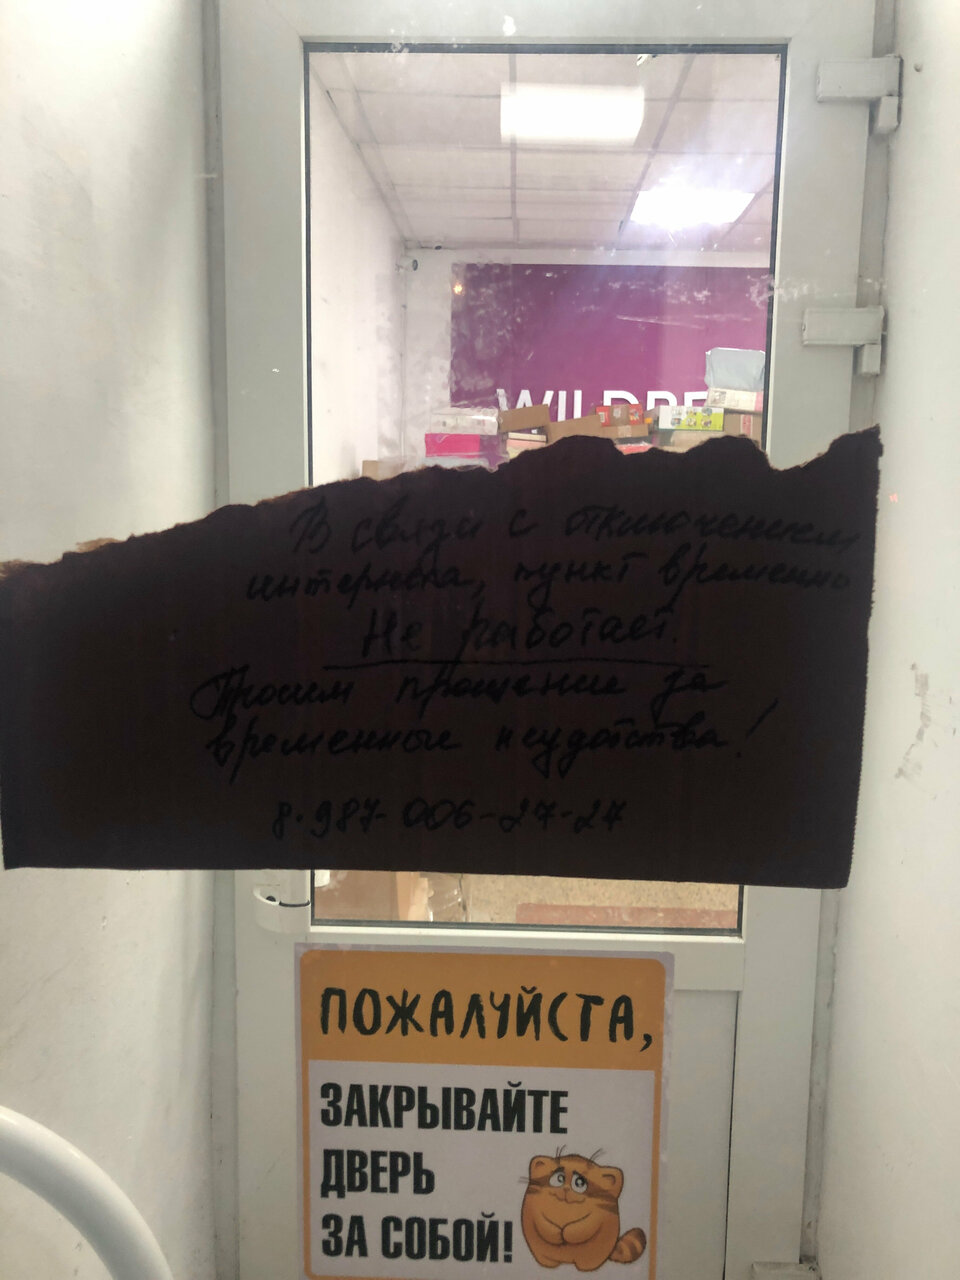 WILDBE
В связи с отключением
интернета, пункт временно
Не работает.
Просим прощение за
временные неудобства!
8-987-006-27-27
ПОЖАЛУЙСТА,
ЗАКРЫВАЙТЕ
ДВЕРЬ
ЗА СОБОЙ!